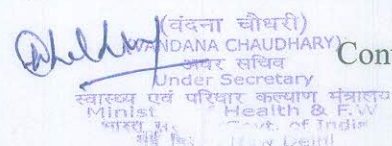 (वंदना चौधरी)
(VANDANA CHAUDHARY)
Con
अवर सचिव
Under Secretary
स्वास्थ्य एवं परिवार कल्याण मंत्रालय
Minist Health & F.W
भारत Govt. of India
New Delhi